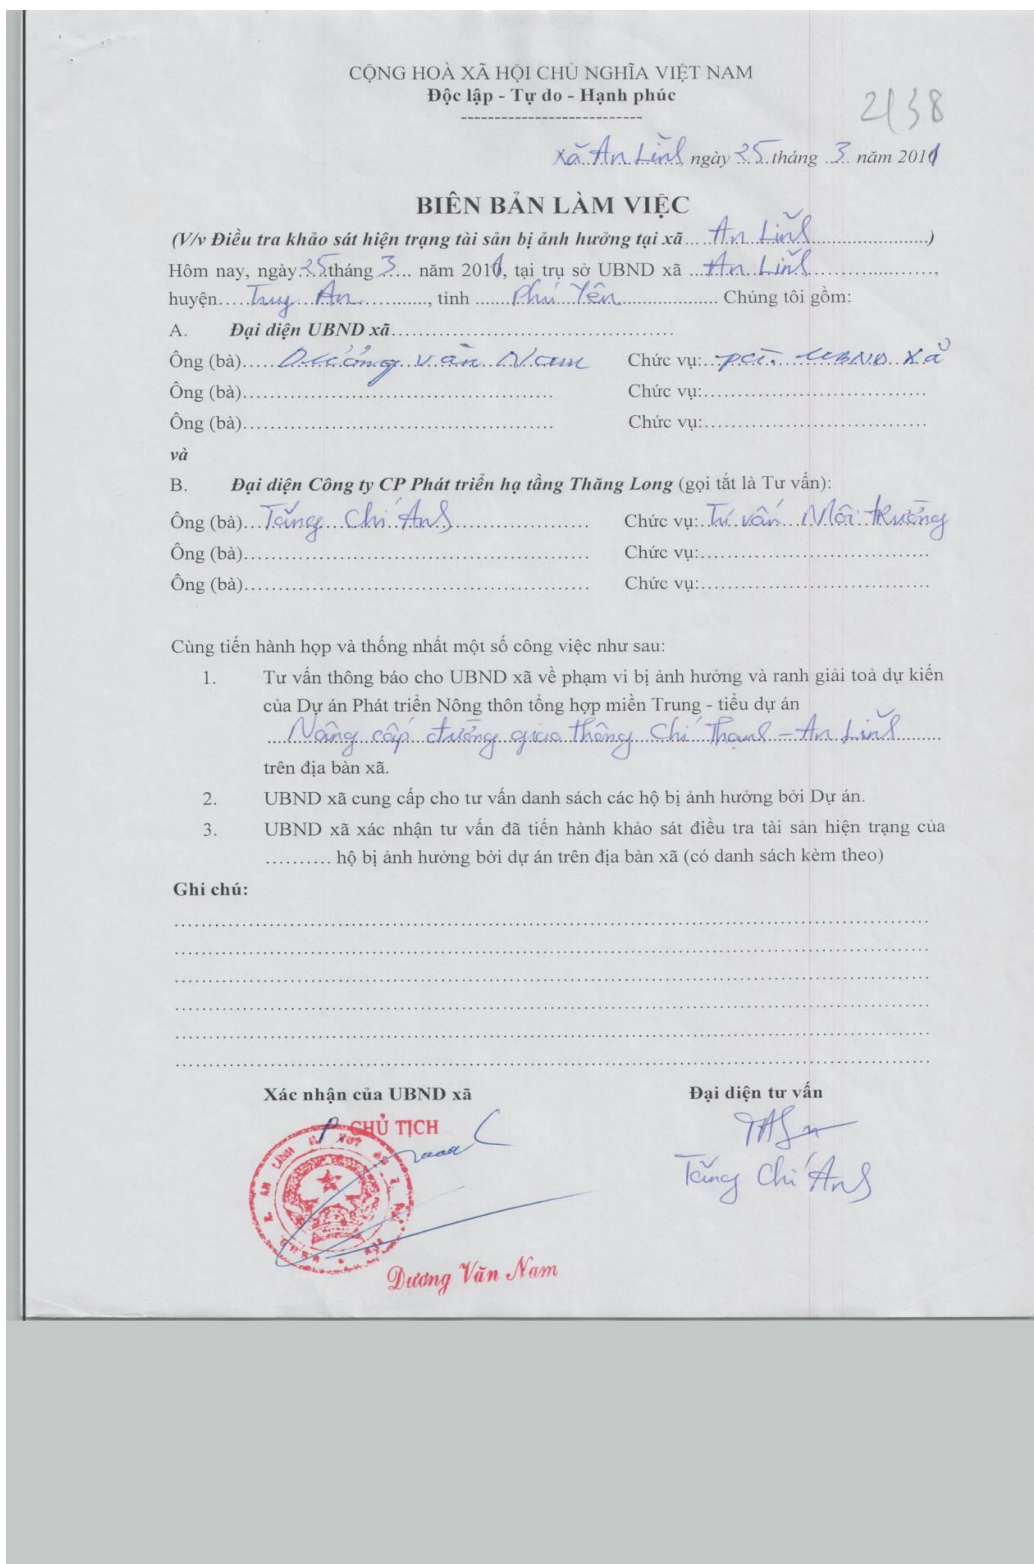 CỘNG HOÀ XÃ HỘI CHỦ NGHĨA VIỆT NAM
Độc lập - Tự do - Hạnh phúc
2138
xã An Lĩnh, ngày 25 tháng 3 năm 2011
BIÊN BẢN LÀM VIỆC
(V/v Điều tra khảo sát hiện trạng tài sản bị ảnh hưởng tại xã An Lĩnh)
Hôm nay, ngày 25 tháng 3 năm 2011, tại trụ sở UBND xã An Lĩnh,
huyện Tuy An, tỉnh Phú Yên Chúng tôi gồm:
A. Đại diện UBND xã
Ông (bà) Dương Văn Nam Chức vụ: PCT. UBND xã
Ông (bà) Chức vụ:
Ông (bà) Chức vụ:
và
B. Đại diện Công ty CP Phát triển hạ tầng Thăng Long (gọi tắt là Tư vấn):
Ông (bà) Tăng Chí Anh Chức vụ: Tư vấn Môi trường
Ông (bà) Chức vụ:
Ông (bà) Chức vụ:
Cùng tiến hành họp và thống nhất một số công việc như sau:
1. Tư vấn thông báo cho UBND xã về phạm vi bị ảnh hưởng và ranh giải toả dự kiến
của Dự án Phát triển Nông thôn tổng hợp miền Trung - tiểu dự án
Nâng cấp đường giao thông Chí Thạnh - An Lĩnh
trên địa bàn xã.
2. UBND xã cung cấp cho tư vấn danh sách các hộ bị ảnh hưởng bởi Dự án.
3. UBND xã xác nhận tư vấn đã tiến hành khảo sát điều tra tài sản hiện trạng của
.......... hộ bị ảnh hưởng bởi dự án trên địa bàn xã (có danh sách kèm theo)
Ghi chú:
Xác nhận của UBND xã Đại diện tư vấn
P. CHỦ TỊCH
Tăng Chí Anh
Dương Văn Nam